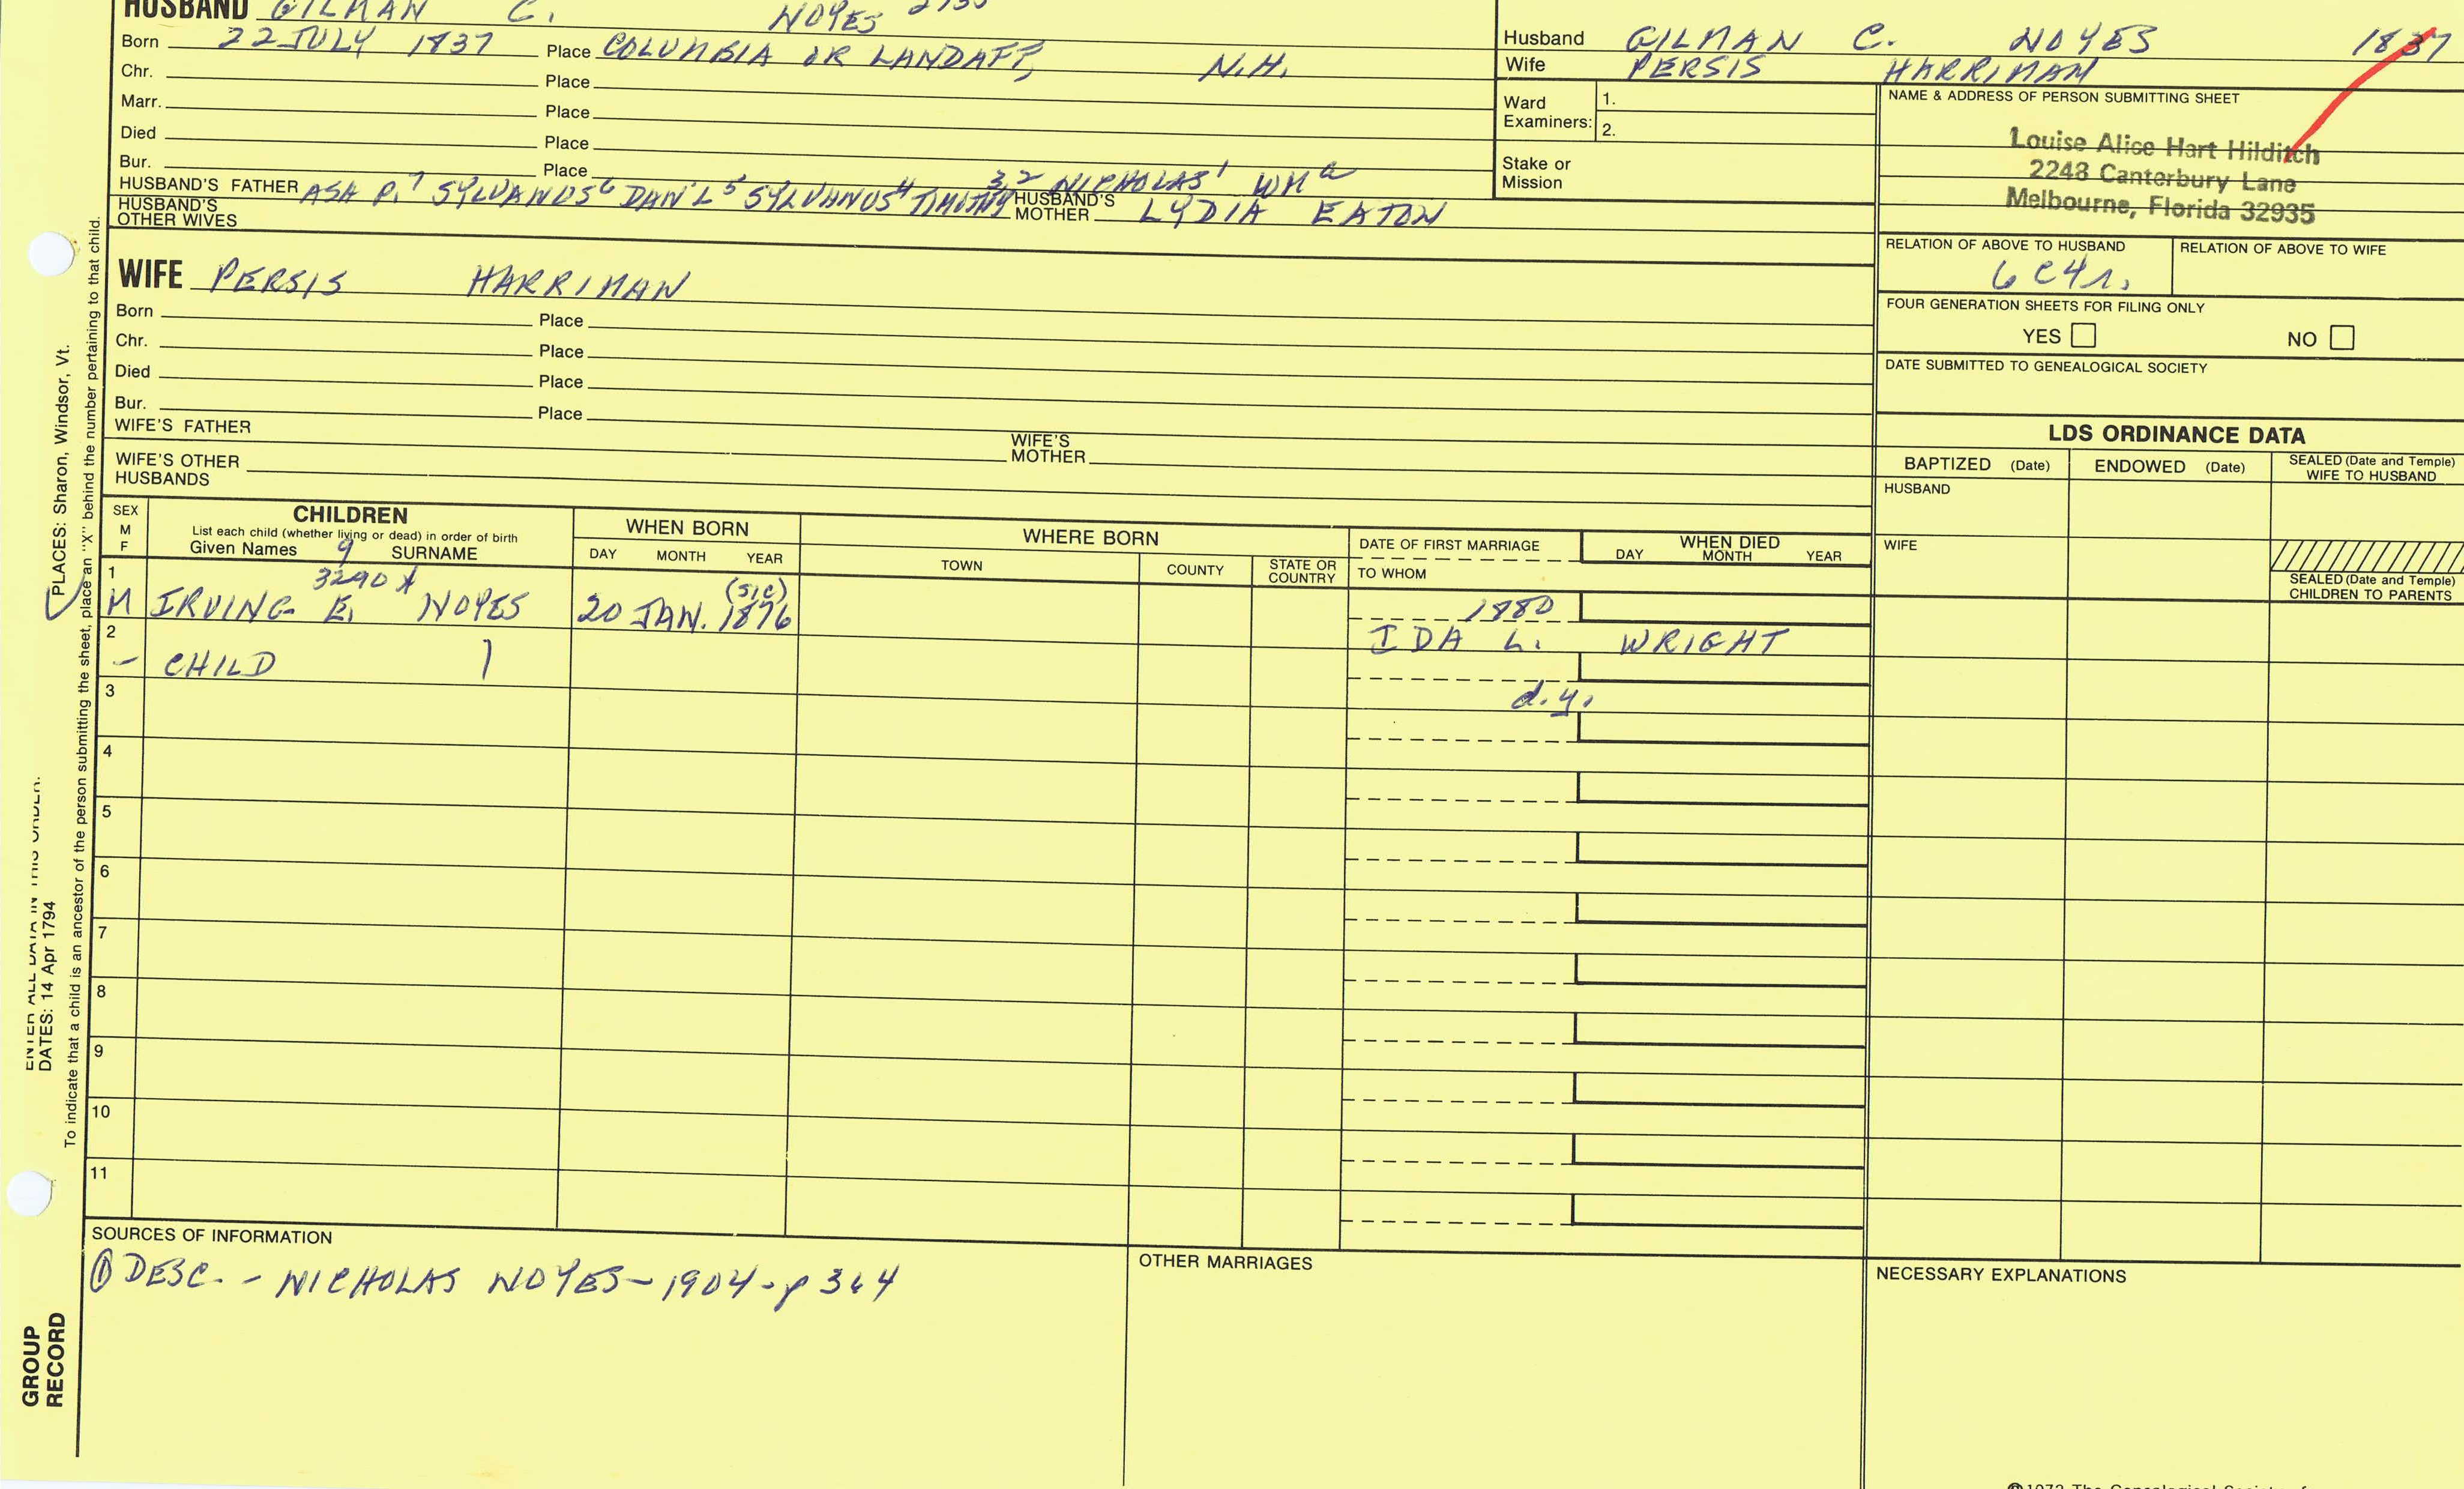 HUSBAND GILMAN C. NOYES
Born 22 JULY 1837 Place COLUMBIA OR LANDAFF, N.H.
Chr. Place
Marr. Place
Died Place
Bur. Place
HUSBAND'S FATHER ASA P.7 SYLVANUS6 DAN'L5 SYLVANUS4 TIMOTHY3,2 NICHOLAS1 WMa HUSBAND'S MOTHER LYDIA EATON
HUSBAND'S OTHER WIVES
Husband GILMAN C. NOYES 1837
Wife PERSIS HARRIMAN
Ward Examiners: 1.
2.
Stake or Mission
NAME & ADDRESS OF PERSON SUBMITTING SHEET
Louise Alice Hart Hilditch
2248 Canterbury Lane
Melbourne, Florida 32935
RELATION OF ABOVE TO HUSBAND RELATION OF ABOVE TO WIFE
6C4r.
FOUR GENERATION SHEETS FOR FILING ONLY
YES NO
DATE SUBMITTED TO GENEALOGICAL SOCIETY
WIFE PERSIS HARRIMAN
Born Place
Chr. Place
Died Place
Bur. Place
WIFE'S FATHER WIFE'S MOTHER
WIFE'S OTHER HUSBANDS
LDS ORDINANCE DATA
BAPTIZED (Date) ENDOWED (Date) SEALED (Date and Temple) WIFE TO HUSBAND
HUSBAND
WIFE
SEALED (Date and Temple) CHILDREN TO PARENTS
SEX M F
CHILDREN
List each child (whether living or dead) in order of birth
Given Names 9 SURNAME
WHEN BORN
DAY MONTH YEAR
WHERE BORN
TOWN COUNTY STATE OR COUNTRY
DATE OF FIRST MARRIAGE
TO WHOM
WHEN DIED
DAY MONTH YEAR
1 3290 (SIC)
M IRVING E. NOYES 20 JAN. 1876 1880
IDA L. WRIGHT
2
- CHILD
d.y.
3
4
5
6
7
8
9
10
11
SOURCES OF INFORMATION
① DESC. - NICHOLAS NOYES - 1904 - p 364
OTHER MARRIAGES
NECESSARY EXPLANATIONS
ENTER ALL DATA IN THIS ORDER:
DATES: 14 Apr 1794
PLACES: Sharon, Windsor, Vt.
To indicate that a child is an ancestor of the person submitting the sheet, place an "X" behind the number pertaining to that child.
GROUP
RECORD
©1972 The Genealogical Society of